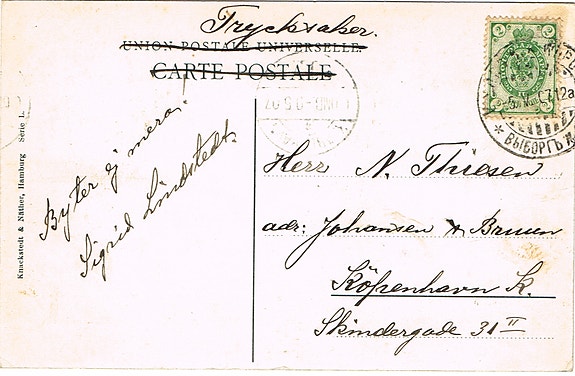 Trycksaker.
UNION POSTALE UNIVERSELLE.
CARTE POSTALE
Knackstedt & Näther, Hamburg Serie L.
Byter ej mera.
Sigrid Lindstedt.
2 2
7.12a
* ВЫБОРГЪ
Herr N. Thiesen
adr: Johansen & Bruun
Köpenhavn K.
Skindergade 31 II